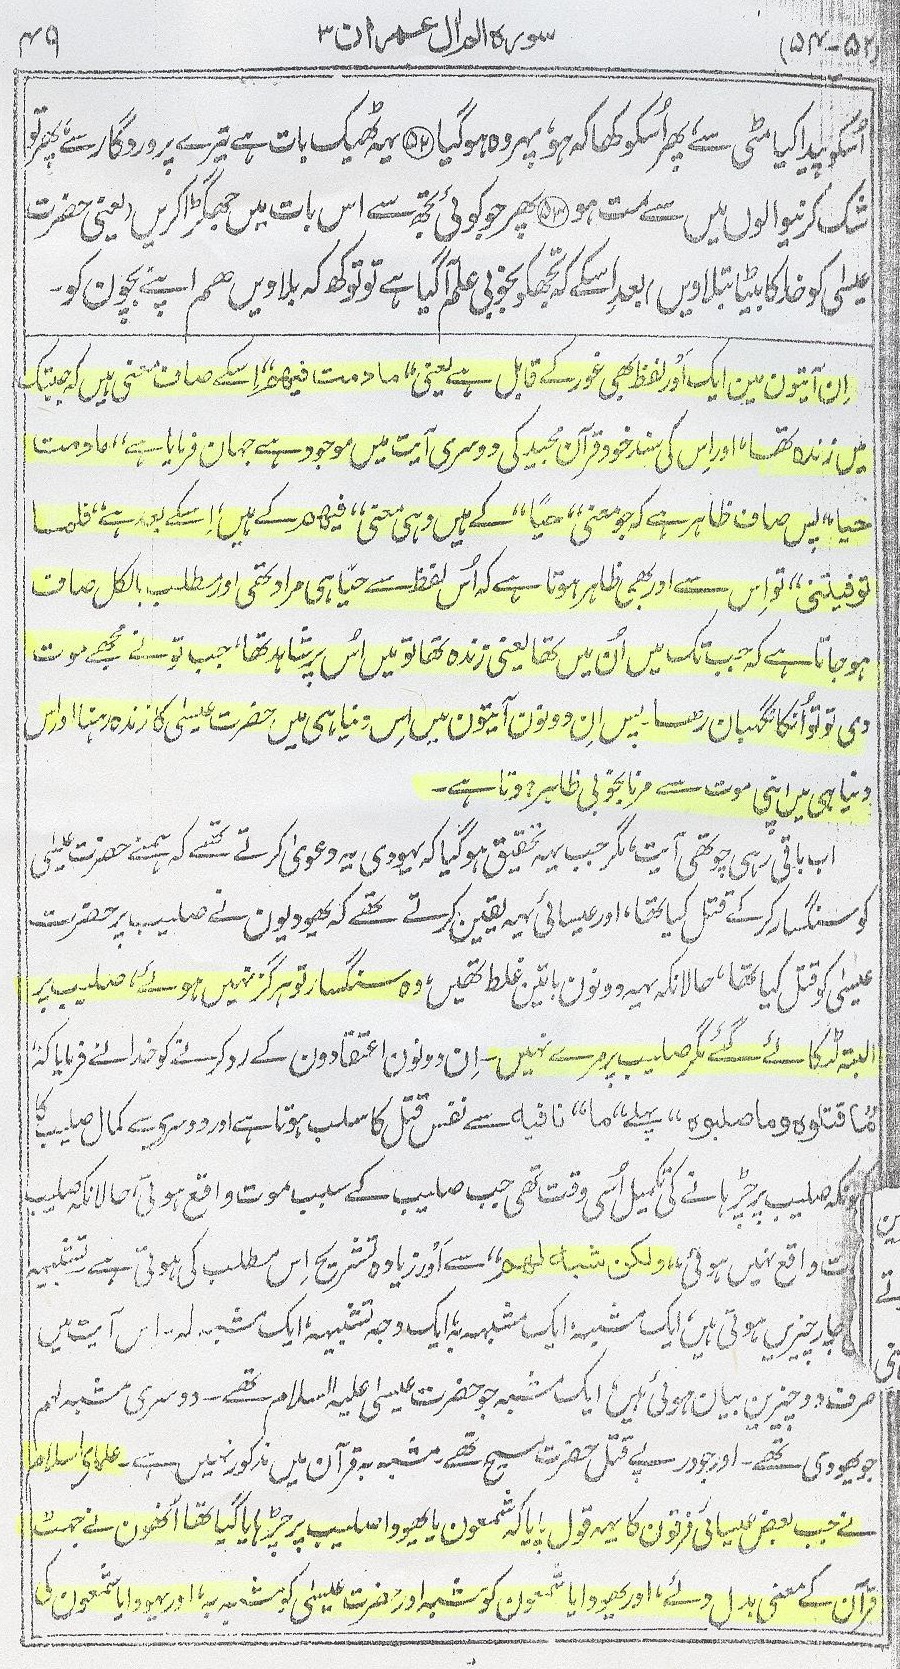 (۵۲-۵۴) سورہ آل عمران ۳ ۴۹
اُسکو پیدا کیا مٹی سے، پھر اُسکو کہا کہ ہو، پہر وہ ہو گیا (۵۲) یہہ ٹھیک بات ہے تیرے پروردگار سے، پھر تو
شک کرنیوالوں میں سے مت ہو (۵۳) پھر جو کوئی تجھ سے اس بات میں جھگڑا کریں (یعنی حضرت
عیسیٰ کو خدا کا بیٹا بتلاویں) بعد اِسکے کہ تجھکو بخوبی علم آگیا ہے تو تو کہہ کہ بلاویں ہم اپنے بچون کو۔
اِن آیتون مین ایک اَوْر لفظ بھی غور کے قابل ہے یعنی "مادمت فیہم" اِسکے صاف معنی ہیں کہ جبتک
میں زندہ تھا، اور اِس کی سند خود قرآن مجید کی دوسری آیت میں موجود ہے جہان فرمایا ہے "مادمت
حیا" پس صاف ظاہر ہے کہ جو معنی "حیًا" کے ہیں وہی معنی "فیہم" کے ہیں، اِسکے بعد ہے "فلما
توفیتنی" تو اِس سے اور بھی ظاہر ہوتا ہے کہ اُس لفظ سے حیّا ہی مراد تھی اور مطلب بالکل صاف
ہو جاتا ہے کہ جب تک میں اُن میں تھا یعنی زندہ تھا تو میں اُس پر شاہد تھا، جب تو نے مجھے موت
دی تو تو اُنکا نگہبان رہا۔ پس اِن دونون آیتون میں اِس دنیا ہی میں حضرت عیسیٰ کا زندہ رہنا اور اس
دنیا ہی میں اپنی موت سے مرنا بخوبی ظاہر ہوتا ہے۔
اب باقی رہی چوتھی آیت، مگر جب یہہ تحقیق ہو گیا کہ یہودی یہ دعوی کرتے تھے کہ ہمنے حضرت عیسٰی
کو سنگسار کر کے قتل کیا تھا، اور عیسائی یہہ یقین کرتے تھے کہ یہودیون نے صلیب پر حضرت
عیسٰی کو قتل کیا تھا، حالانکہ یہہ دونون باتین غلط تھیں، وہ سنگسار تو ہرگز نہیں ہوئے، صلیب پر
البتہ لٹکائے گئے مگر صلیب پر مرے نہیں۔ اِن دونون اعتقادون کے رد کرنے کو خدا نے فرمایا کہ
"ما قتلوہ وما صلبوہ" پہلے "ما" نافیہ سے نفس قتل کا سلب ہوتا ہے اور دوسرے سے کمال صلیب کا
کیونکہ صلیب پر چڑہانے کی تکمیل اُسی وقت تھی جب صلیب کے سبب موت واقع ہوتی، حالانکہ صلیب
موت واقع نہیں ہوئی، "ولکن شبہ لہم" سے اَوْر زیادہ تشریح اِس مطلب کی ہوتی ہے۔ تشبیہ
چار چیزیں ہوتی ہیں، ایک مشبہ، ایک مشبہ بہ، ایک وجہ تشبیہ، ایک مشبہ لہ۔ اس آیت میں
صرف دو چیزین بیان ہوئی ہیں، ایک مشبہ جو حضرت عیسٰی علیہ السلام تھے۔ دوسری مشبہ لہم
جو یہودی تھے۔ اور جو درپے قتل حضرت مسیح تھے۔ مشبہ بہ قرآن میں مذکور نہیں ہے۔ علمای اسلام
نے جب بعض عیسائی فرقون کا یہہ قول پایا کہ شمعون یا یہودا صلیب پر چڑہایا گیا تھا اُنھون نے جھٹ
قرآن کے معنی بدل دئے، اور یہودا یا شمعون کو مشبہ اور حضرت عیسٰی کو مشبہ بہ، اور یہودا یا شمعون کی